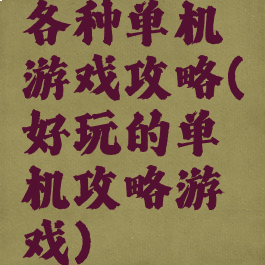 各种单机
游戏攻略(
好玩的单
机攻略游
戏)